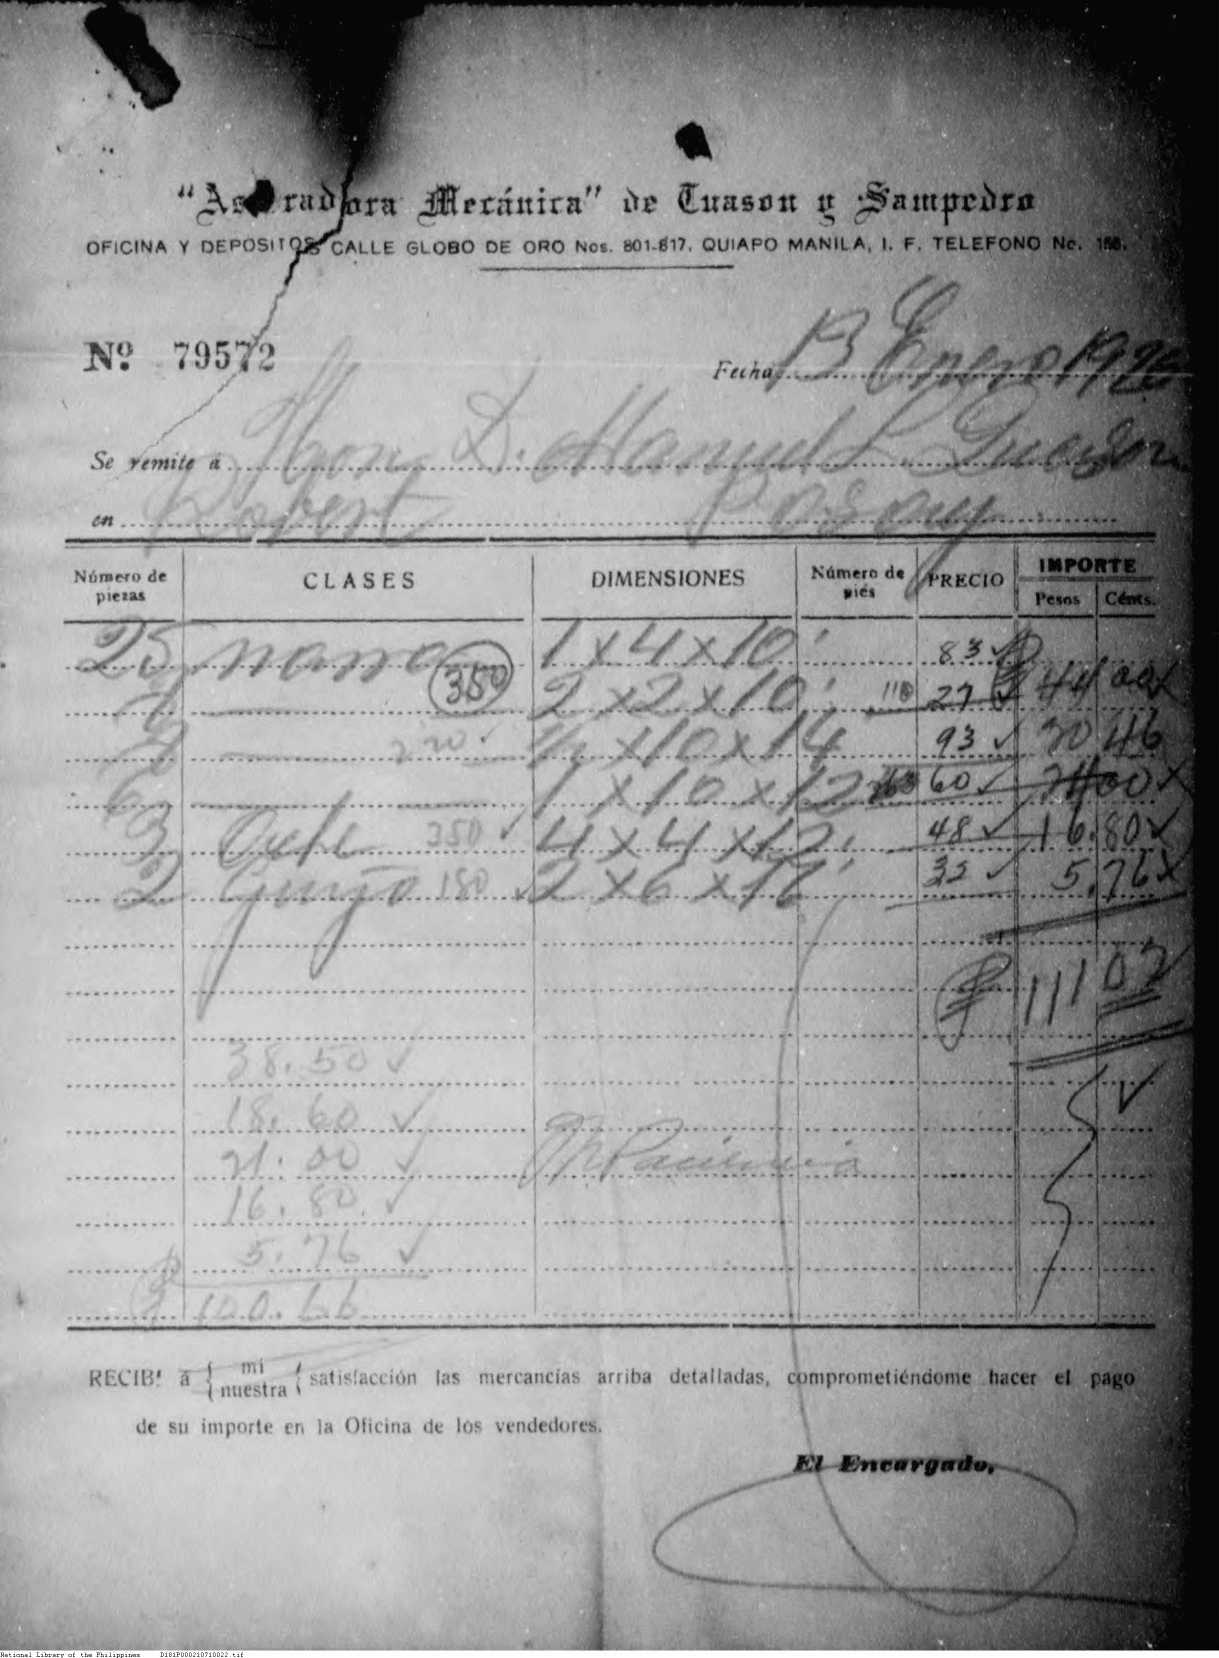 "Aserradora Mecánica" de Tuason y Sampedro
OFICINA Y DEPOSITOS CALLE GLOBO DE ORO Nos. 801-817. QUIAPO MANILA, I. F. TELEFONO No. 156.
Nº 79572
Fecha 13 Enero 1926
Se remite á Hon. D. Manuel L. Quezon
en Robert Pasay
Número de piezas CLASES DIMENSIONES Número de piés PRECIO IMPORTE Pesos Cénts.
25 1 x 4 x 10' 83
350 2 x 2 x 10' 110 27 ₱ 44 00
2 220 x 10 x 14 93 20 46
6 1 x 10 x 12 60 00
3 350 4 x 4 x 12' 48 16.80
2 Guijo 180 2 x 6 x 32 5.76
₱ 111 02
38.50
18.60
21.00
16.80
5.76
₱ 100.66
RECIBI á { mi nuestra { satisfacción las mercancías arriba detalladas, comprometiéndome hacer el pago
de su importe en la Oficina de los vendedores.
El Encargado,
National Library of the Philippines D181P000210710022.tif